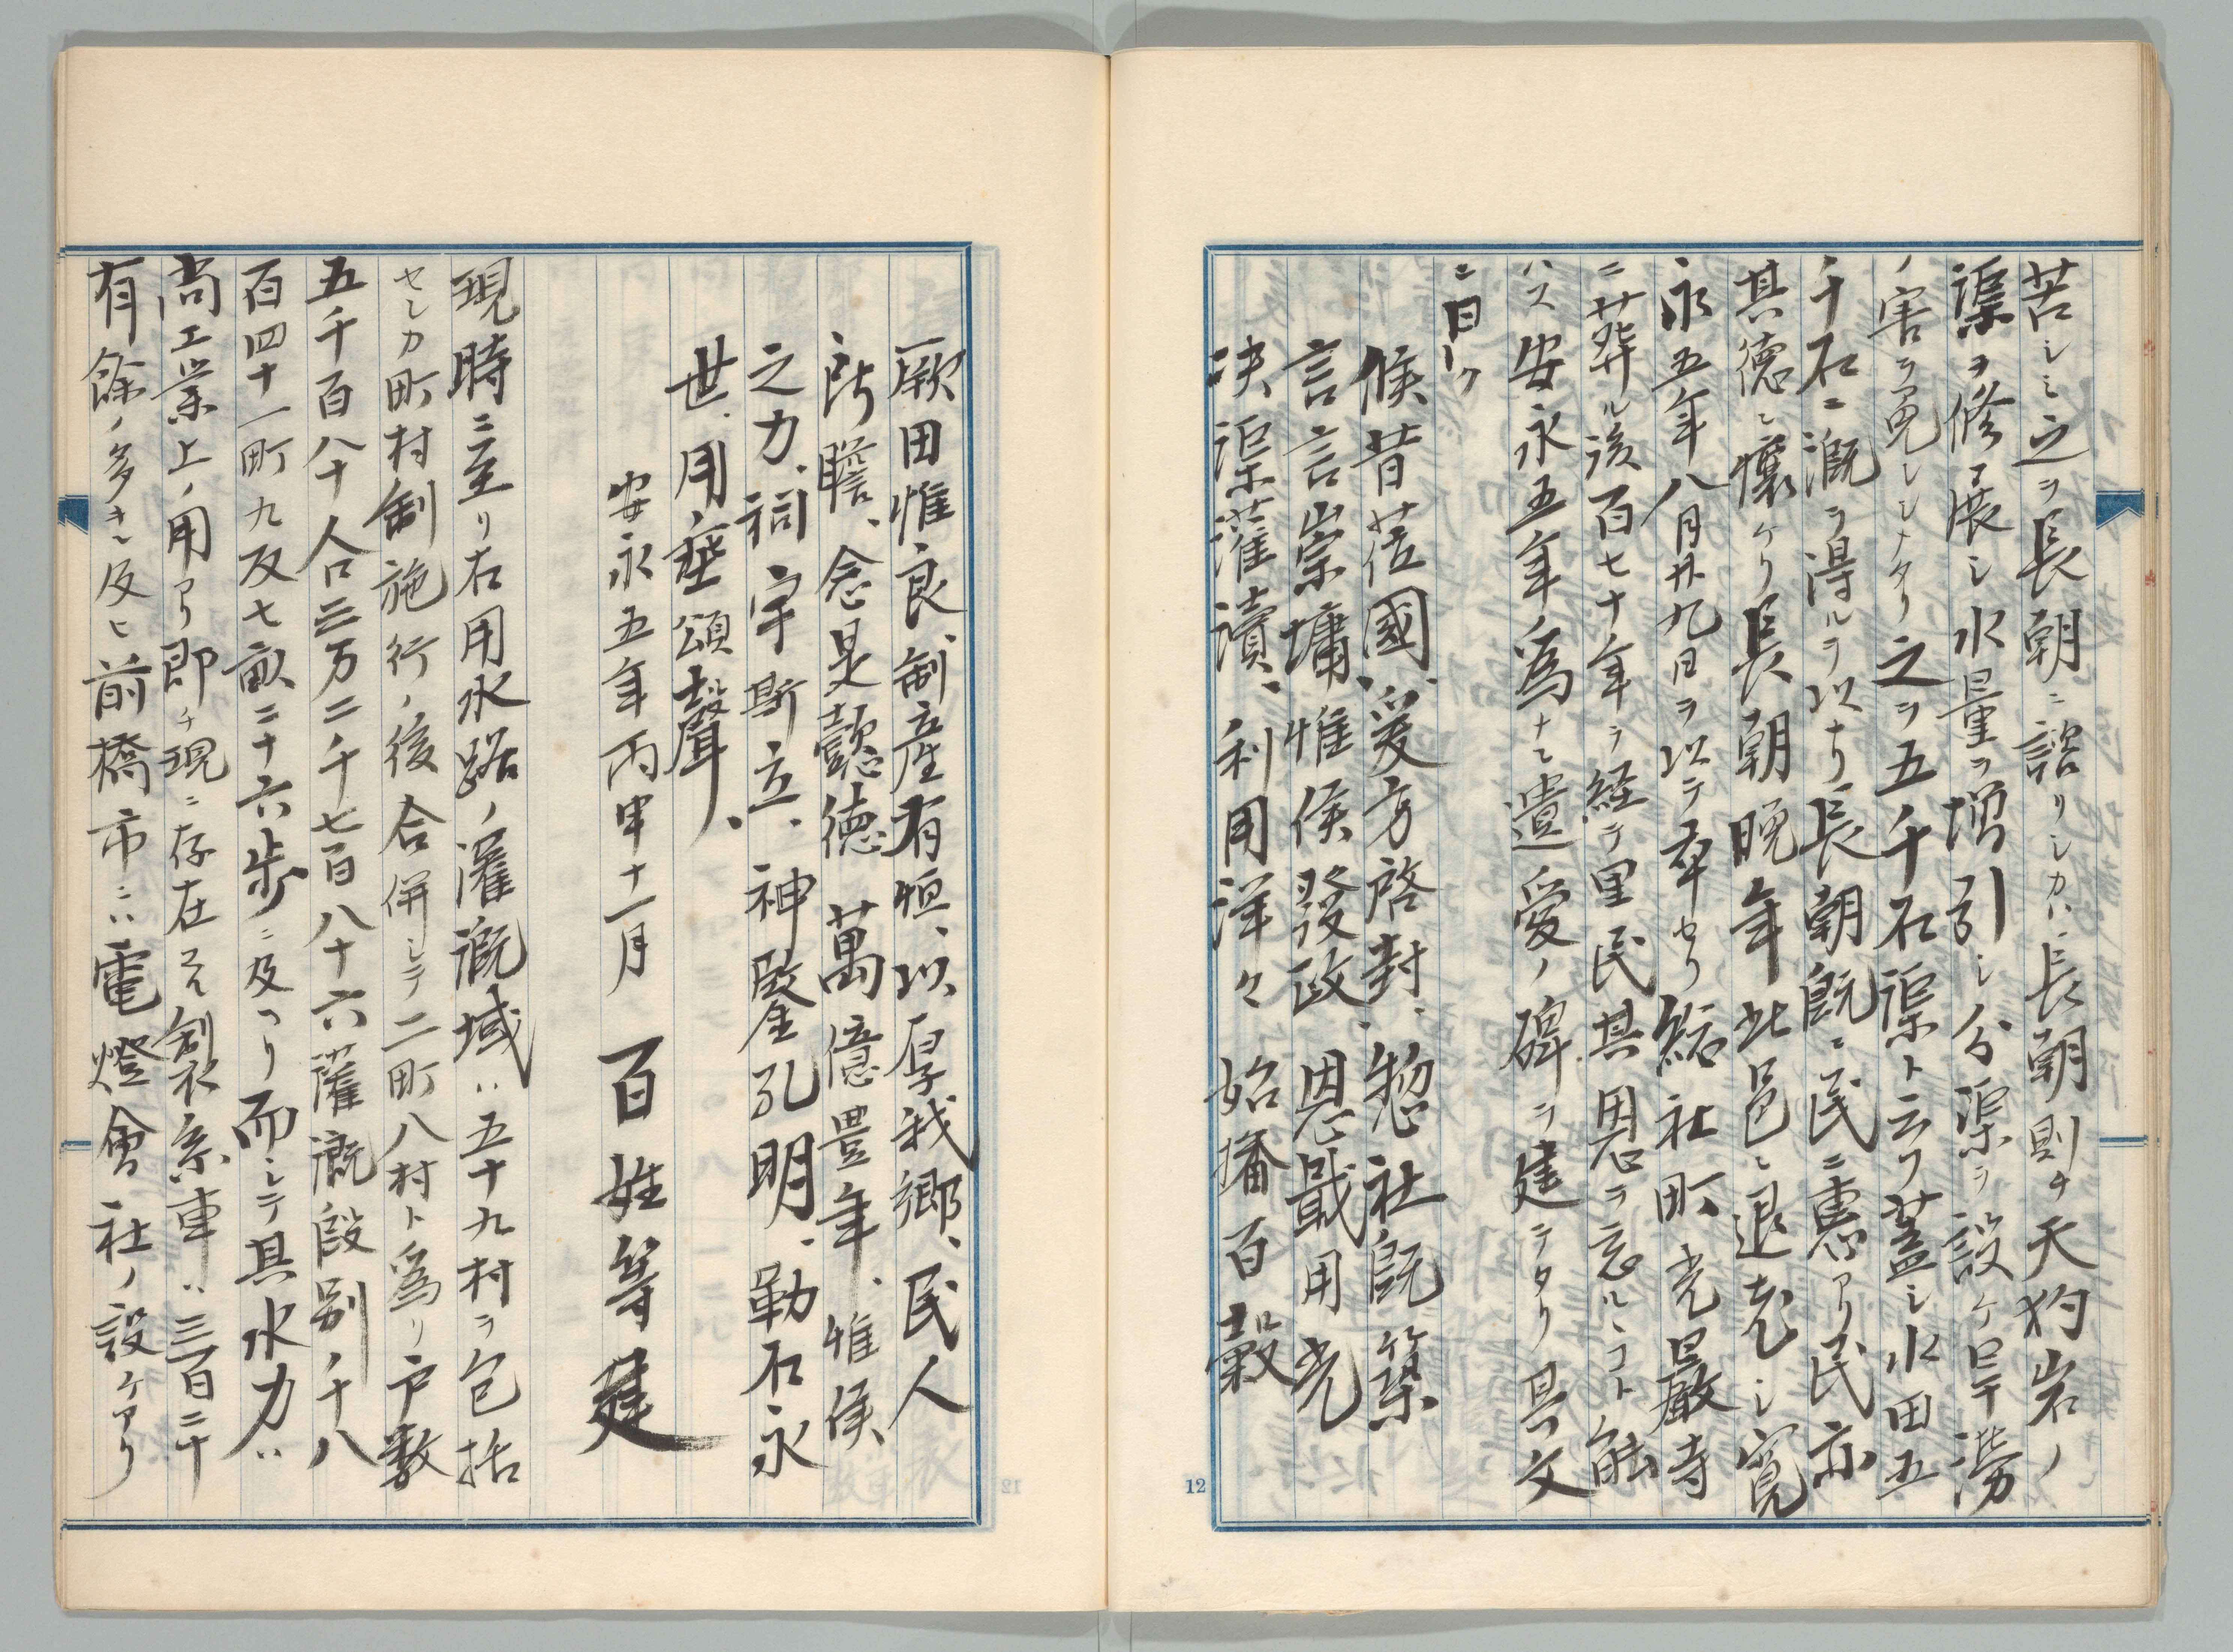 苦シミ之ヲ長朝ニ諮リシカハ長朝則チ天狗岩ノ
渠ヲ修メ展シ水量ヲ増引シ分渠ヲ設ケ旱澇
ノ害ヲ免レシメタリ之ヲ五千石渠ト云フ蓋シ水田五
千石ニ漑ヲ得ルヲ以ナリ長朝既ニ民ニ惠アリ民亦
其徳ニ懷ケリ長朝晩年此邑ニ退老シ寛
永五年八月廿九日ヲ以テ卒セリ総社町光巌寺
ニ葬ル後百七十年ヲ経テ里民其恩ヲ忘ルヽコト能
ハス安永五年ノ爲ナニ遺愛ノ碑ヲ建テタリ其文
ニ曰ク
候昔莅國、爰方啓封、惣社既築
言言崇墉、惟侯發政、恩戴用光
決渠灌瀆、利用洋々 始播百穀
厥田惟良、制産有恒、以厚我郷、民人
所瞻、念是懿徳 萬億豊年、惟侯
之力、祠宇斯立、神鑒孔明、勒石永
世、用垂頌聲、
安永五年丙申十一月 百姓等建
現時ニ至リ右用水路ノ灌漑域ハ五十九村ヲ包括
セシカ町村制施行ノ後合併シテ二町八村ト爲リ戸数
五千百八十人口三万二千七百八十六灌漑段別ノ千八
百四十一町九反七畝二十六歩ニ及ヘリ而シテ其水力ハ
尚工業上ノ用アリ即チ現ニ存在スル製糸車ハ三百三十
有餘ノ多キニ及ヒ前橋市ニハ電燈會社ノ設ケアリ
12